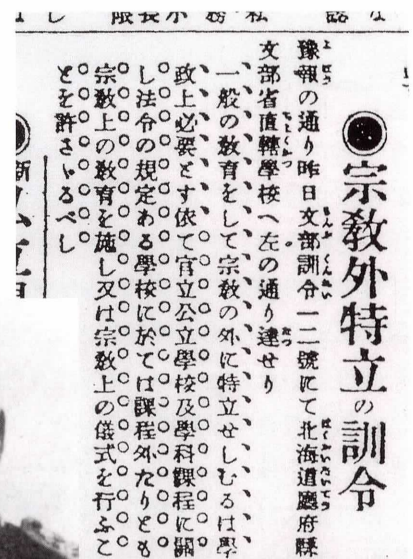 宗敎外特立の訓令
豫報の通り昨日文部訓令一二號にて北海道廳府縣
文部省直轄學校へ左の通り達せり
一般の敎育をして宗敎の外に特立せしむるは學
政上必要とす依て官立公立學校及學科課程に關
し法令の規定ある學校に於ては課程外たりとも
宗敎上の敎育を施し又は宗敎上の儀式を行ふこ
とを許さゝるべし